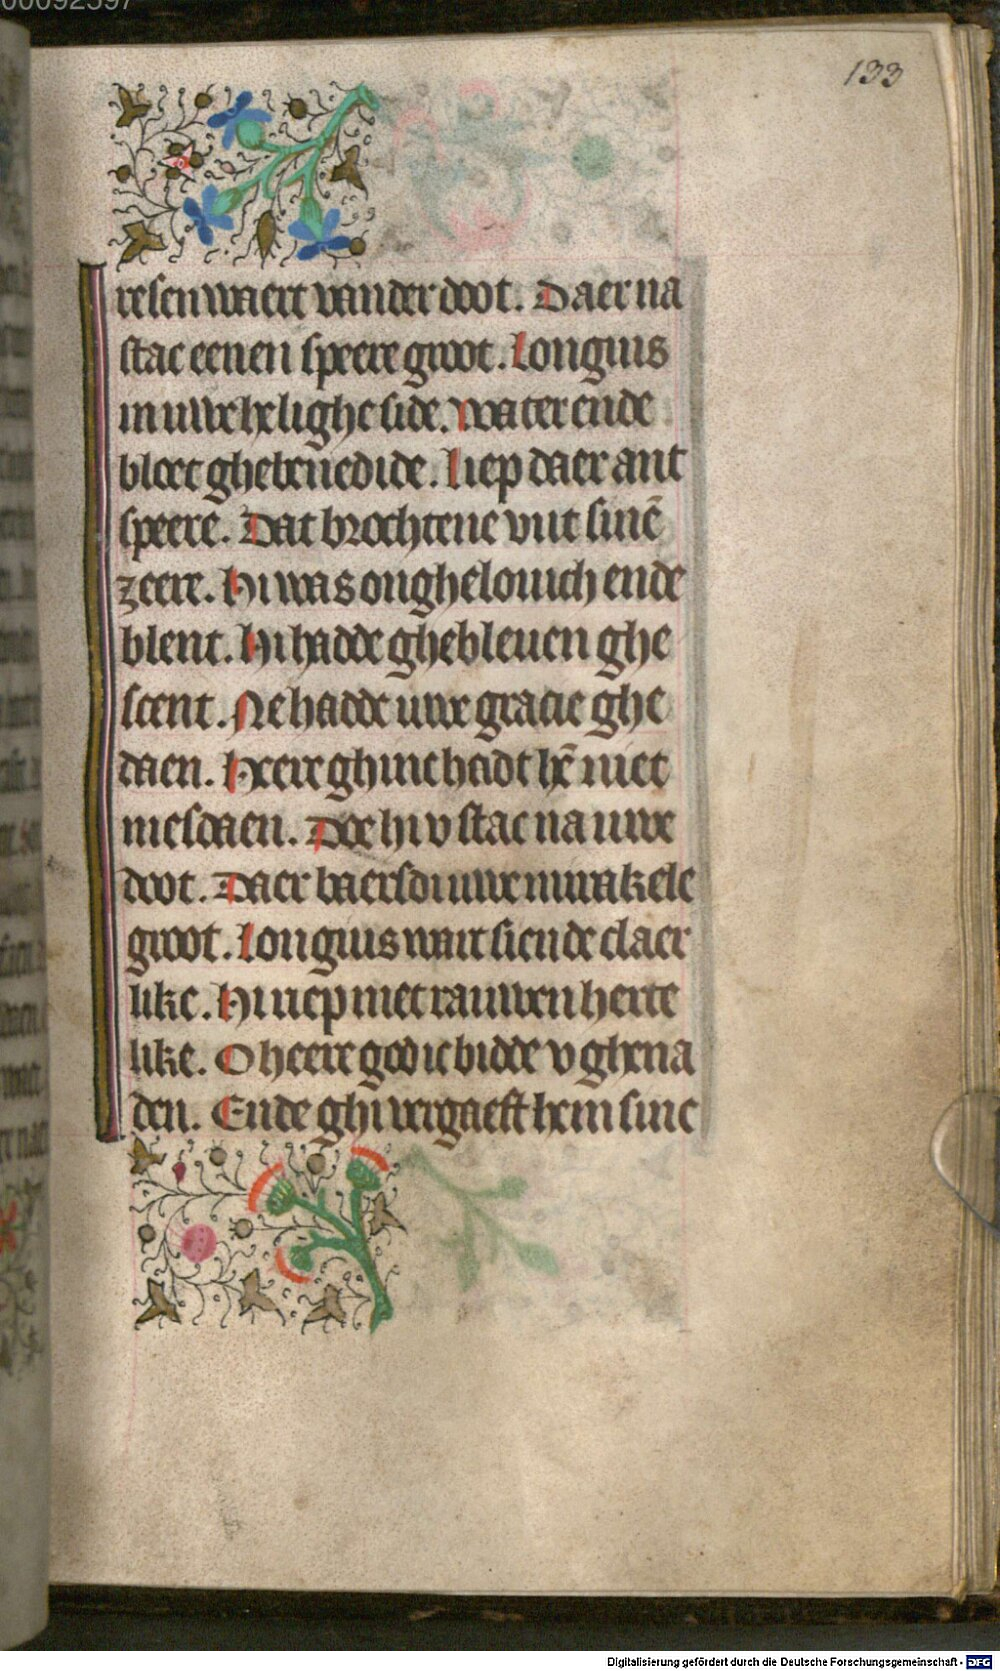 133
resen waert vander doot. Daer na
stac eenen speere groot. Longius
in uwe helighe side. Water ende
bloet ghebenedide. Liep daer ant
speere. Dat brochtene vut sinē
zeere. Hi was onghelouich ende
blent. Hi hadde ghebleuen ghe
scent. Ne hadde uwe gracie ghe
daen. Heere ghine heidt hē niet
mesdaen. Doe hi v stac na uwe
doot. Daer baersdi uwe mirakele
groot. Longius wart siende claer
like. Hi riep met rauwen herte
like. O heere god ic bidde v ghena
den. Ende ghi vergaeft hem sine
Digitalisierung gefördert durch die Deutsche Forschungsgemeinschaft - DFG